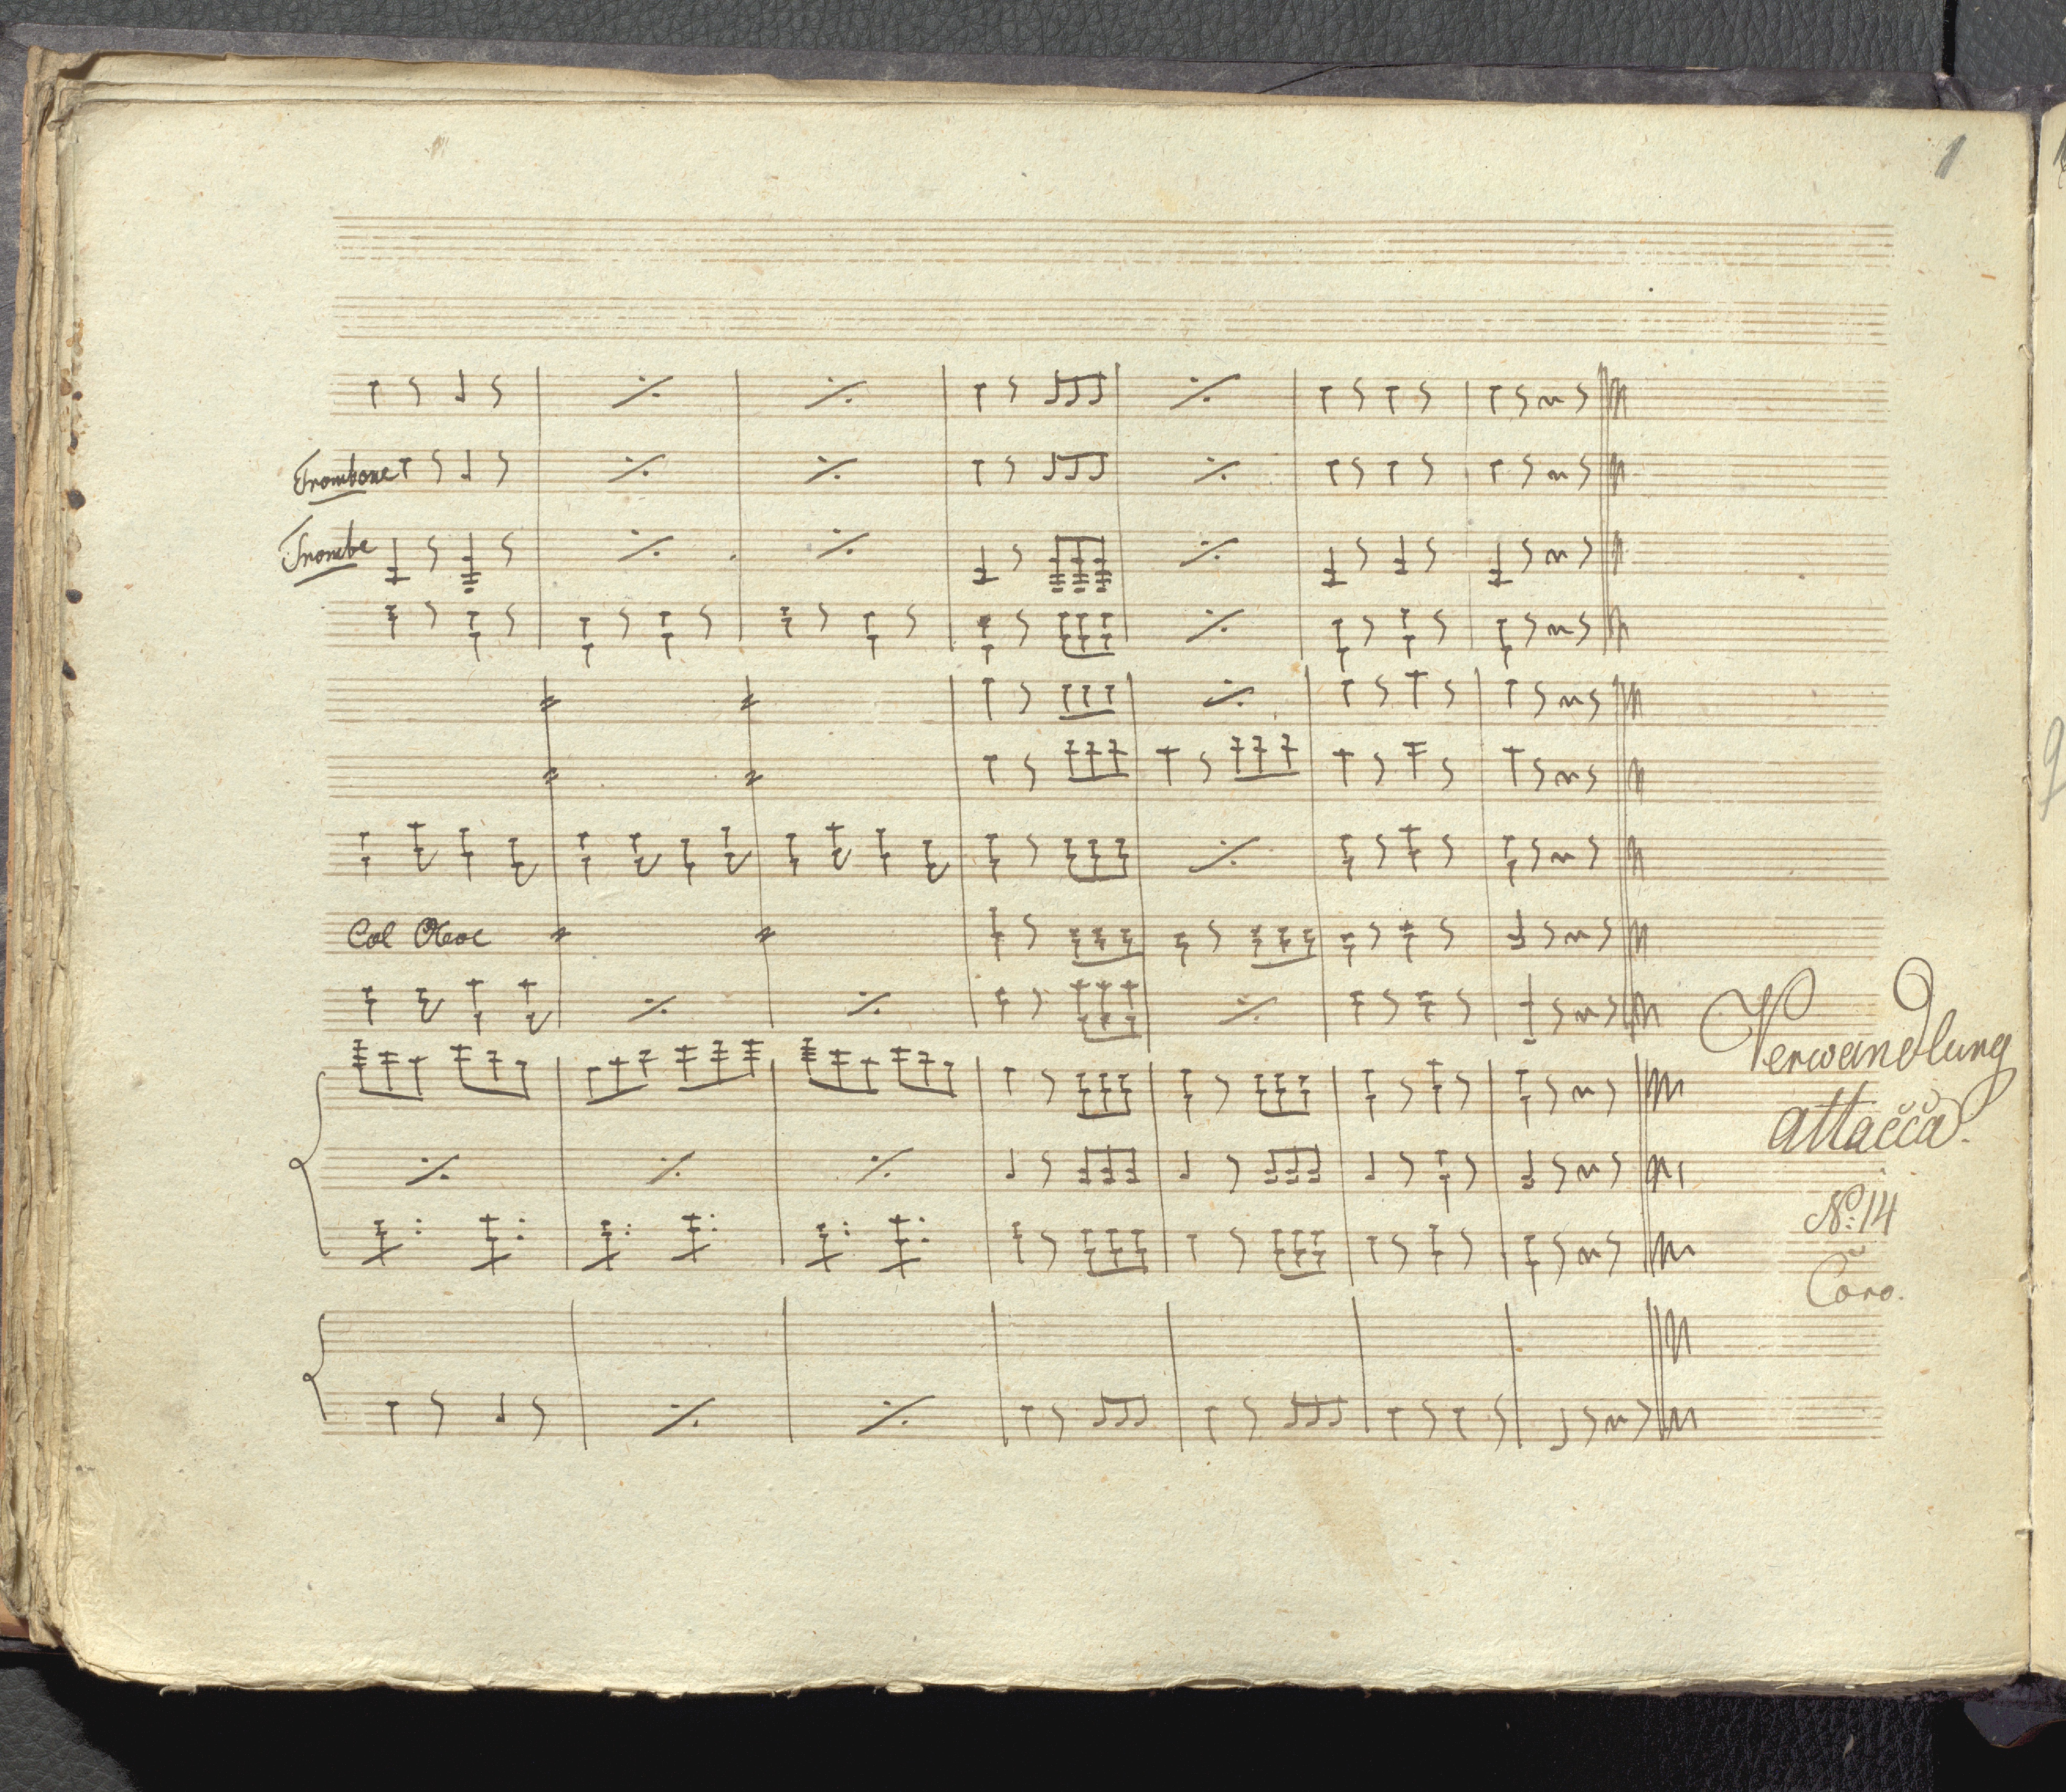 Trombone
Trombe
Col Oboe
Verwandlung
attacca.
No: 14
Coro.